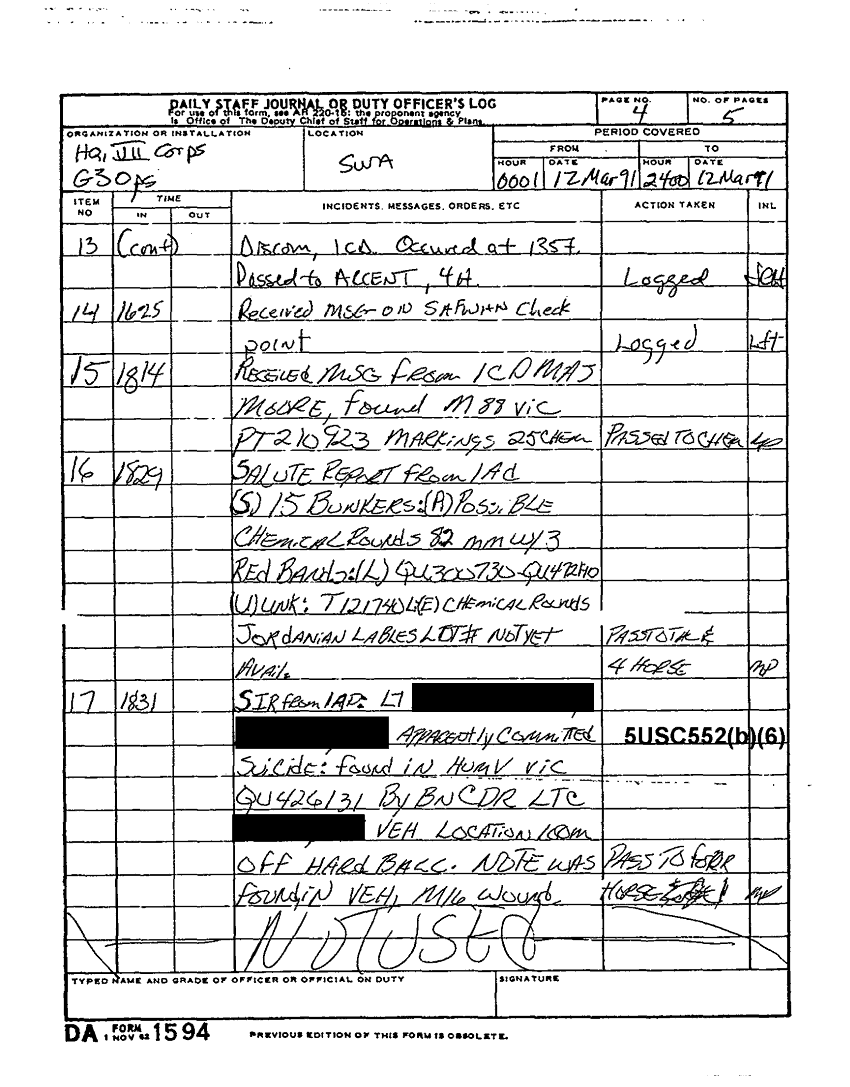 DAILY STAFF JOURNAL OR DUTY OFFICER'S LOG
For use of this form, see AR 220-15: the proponent agency
is Office of The Deputy Chief of Staff for Operations & Plans.
PAGE NO.
4
NO. OF PAGES
5
ORGANIZATION OR INSTALLATION
HQ, VII Corps
G3 Ops
LOCATION
SWA
PERIOD COVERED
FROM
TO
HOUR
DATE
HOUR
DATE
0001 12 Mar 91 2400 12 Mar 91
ITEM NO
TIME
IN
OUT
INCIDENTS, MESSAGES, ORDERS, ETC
ACTION TAKEN
INL
13 (cont) Discom, 1CD. Occured at 1357.
Passed to ARCENT, 4H. Logged
14 1625 Received MSG ON SAFWAN Check
point Logged
15 1814 RECEIVED MSG from 1CD MAJ
MOORE, found M88 vic
PT210923 MARKINGS 25CHEM PASSED TO CHEM
16 1829 SALUTE REPORT from 1AD
(S) 15 BUNKERS:(A) POSSIBLE
CHEMICAL ROUNDS 82 mm w/3
RED BANDS:(L) QU300730-QU472740
(U) UNK: T121740L(E) CHEMICAL ROUNDS
JORDANIAN LABLES LOT# NOT YET
AVAIL. 4 HORSE MP
17 1831 SIR from 1AD: LT
APPARENTLY COMMITTED 5USC552(b)(6)
SUICIDE: found IN HUMV VIC
QU426131 BY BN CDR LTC
VEH LOCATION 100m
OFF HARD BALL. NOTE WAS PASS TO
found IN VEH, M16 wound. HORSE MP
NOT USED
TYPED NAME AND GRADE OF OFFICER OR OFFICIAL ON DUTY
SIGNATURE
DA FORM 1594
1 NOV 62
PREVIOUS EDITION OF THIS FORM IS OBSOLETE.